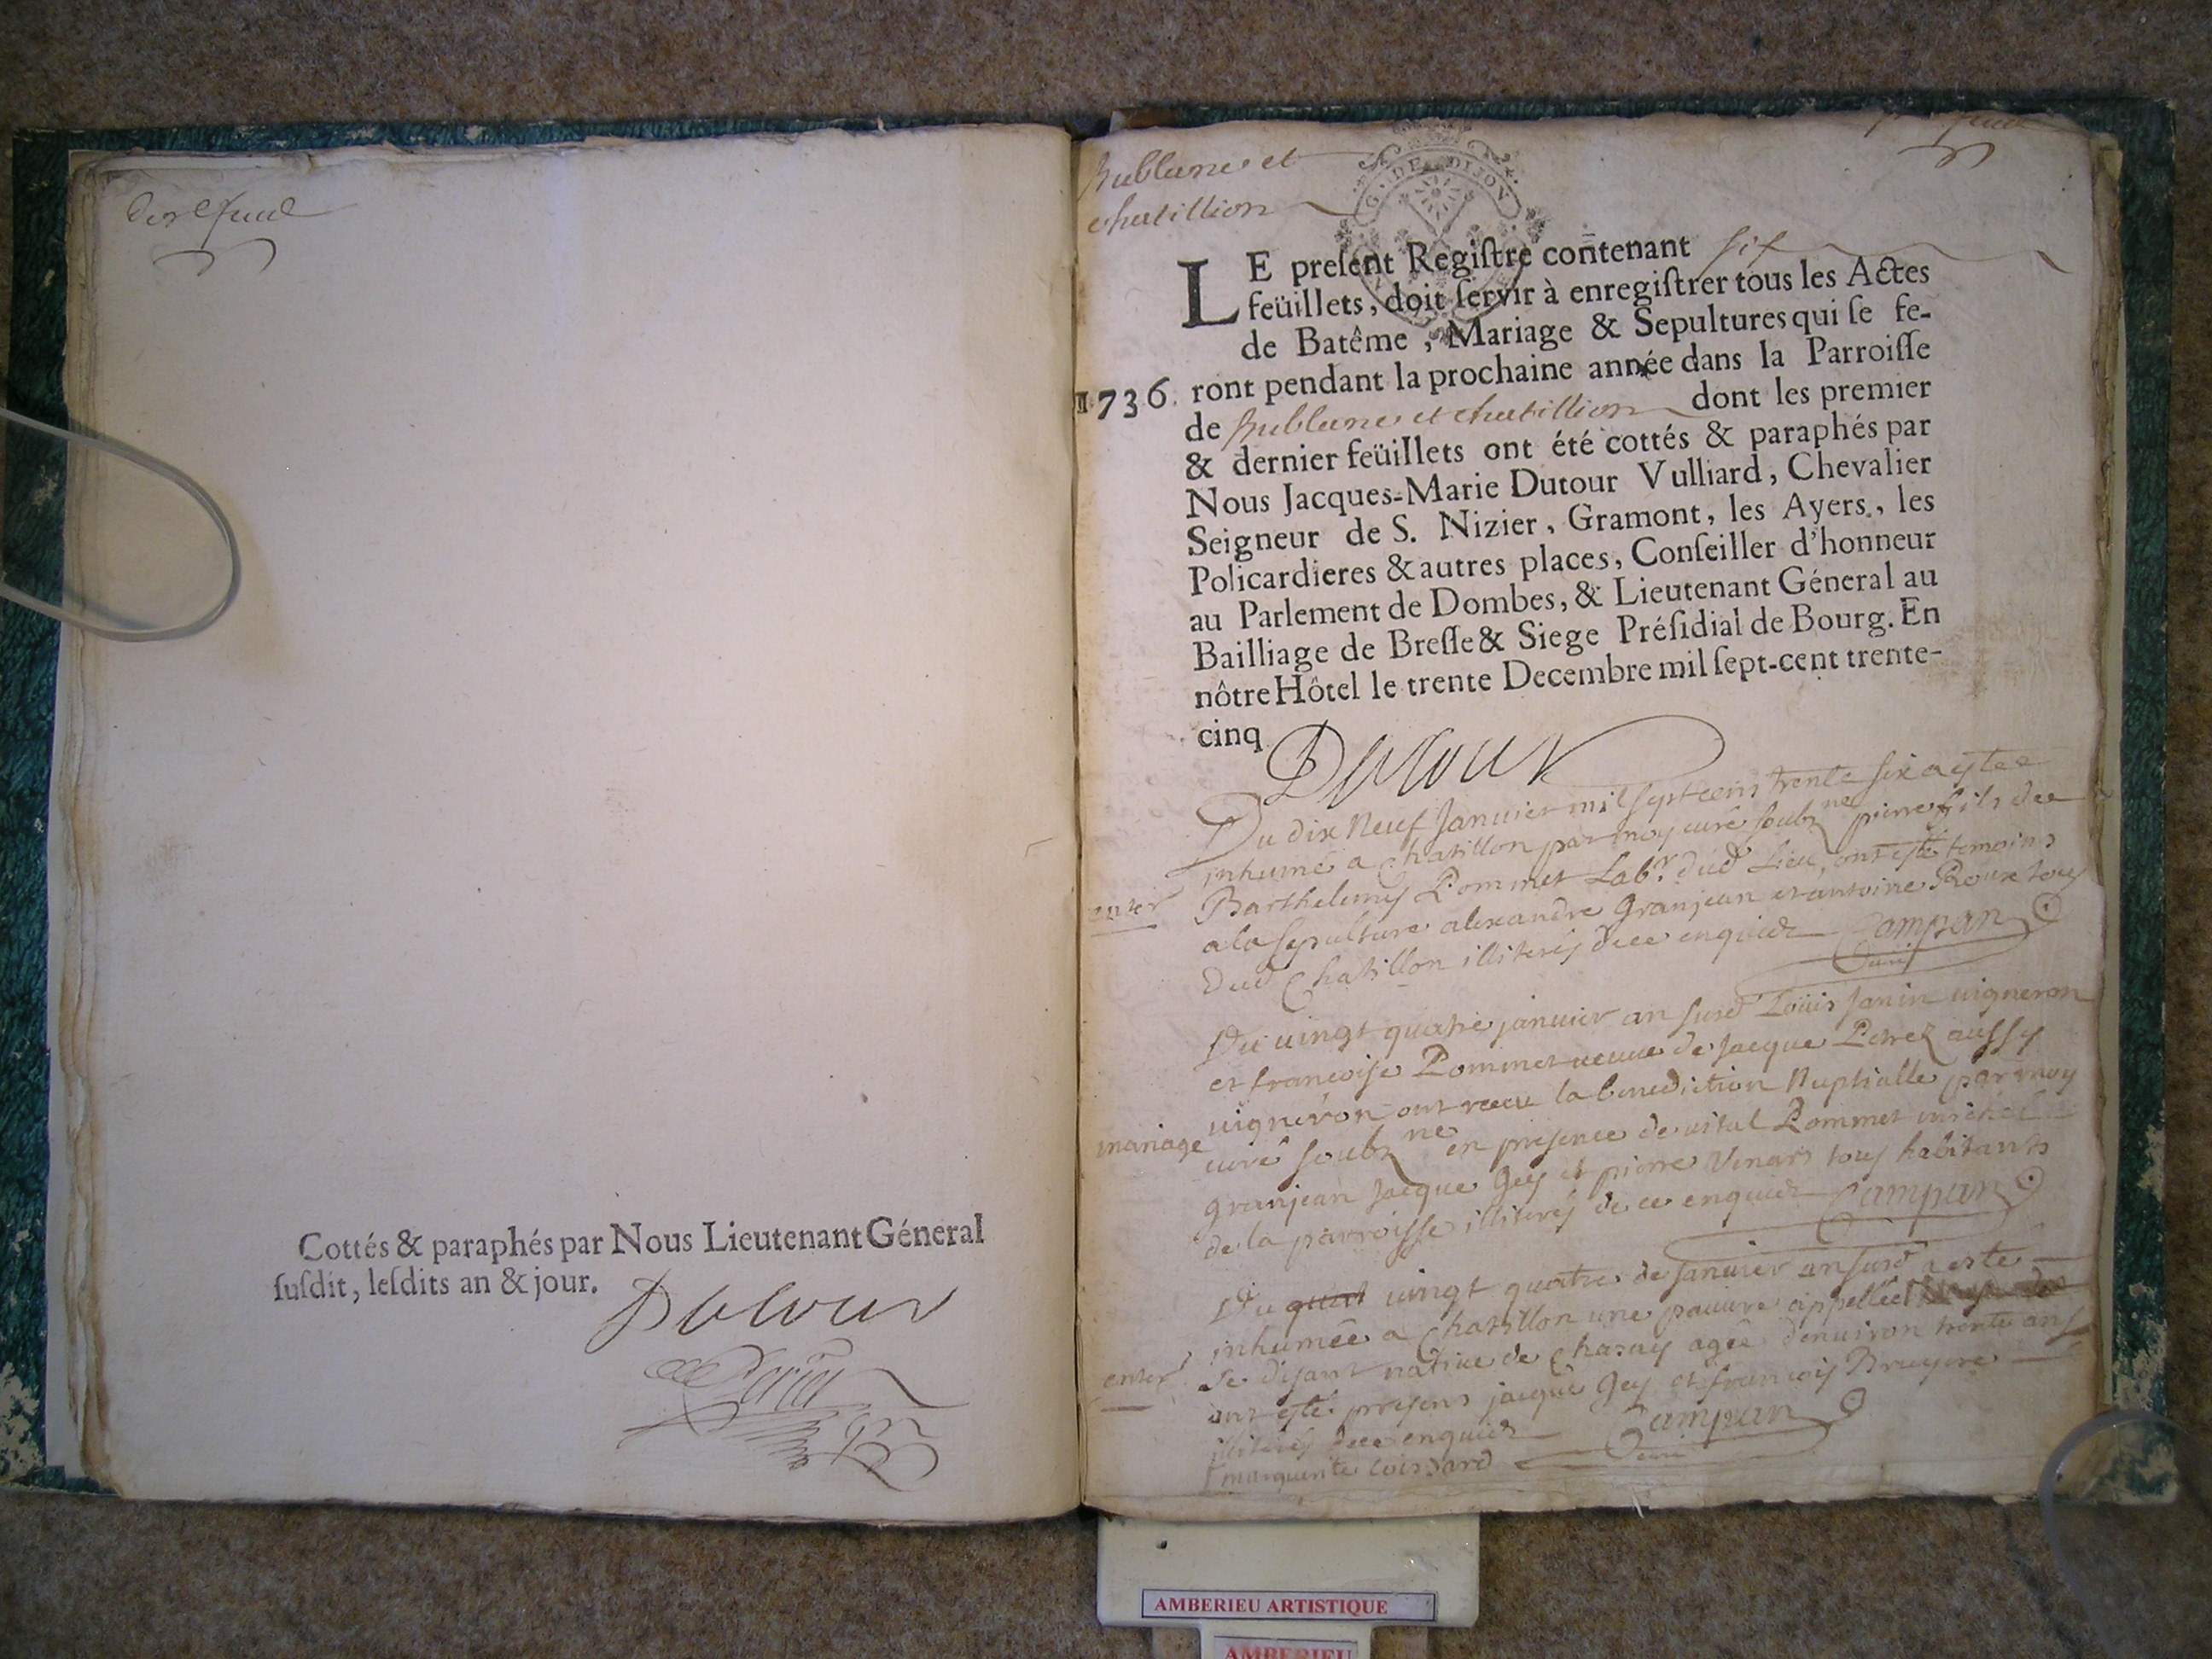 Cottés & paraphés par Nous Lieutenant Géneral
ſuſdit, leſdits an & jour.
Dutour
chatillion
G. DE DIJON
LE preſent Regiſtre contenant six
feüillets, doit ſervir à enregiſtrer tous les Actes
de Batême, Mariage & Sepultures qui ſe fe-
1736. ront pendant la prochaine année dans la Parroiſſe
de Rublanes et chatillion dont les premier
& dernier feüillets ont été cottés & paraphés par
Nous Jacques-Marie Dutour Vulliard, Chevalier
Seigneur de S. Nizier, Gramont, les Ayers, les
Policardieres & autres places, Conſeiller d'honneur
au Parlement de Dombes, & Lieutenant Géneral au
Bailliage de Breſſe & Siege Préſidial de Bourg. En
nôtre Hôtel le trente Decembre mil ſept-cent trente-
cinq
Dutour
Du dix Neuf Janvier mil sept cens trente six a esté
inhumé a Chatillon par moy curé soubz ne pierre fils de
Barthelemy Pommet Labr. dud Lieu, ont esté temoins
enter
a la sepulture alexandre Granjean et antoine Roux tous
dud Chatillon illiterés de ce enquis Campan
Curé
Du vingt quatre janvier an susd Loüis Janin vigneron
et francoise Pommet veuve de Jacque Perrez aussy
vigneron ont receu la benediction Nuptialle par moy
mariage
curé soubz ne en presence de vital Pommet michel
granjean Jacque Gey et pierre Venard tous habitants
de la parroisse illiterés de ce enquis Campan
Du vingt quatre de janvier an susd a este
inhumée a Chatillon une pauvre appellée
enter
se disant native de Charay agée d'environ trente ans
ont esté presens jacque Gey et francois Bruyere
illiterés de ce enquis Campan
Curé
marguerite
AMBERIEU ARTISTIQUE
AMBERIEU